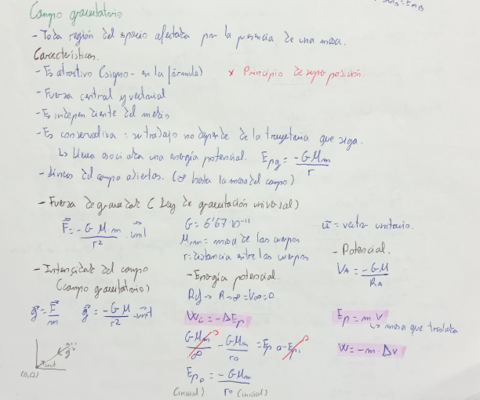 Campo gravitatorio
- Toda región del espacio afectada por la presencia de una masa.
Características.
- Es atractivo (signo - en la fórmula)
* Principio de superposición.
- Fuerza central y vectorial
- Es independiente del medio
- Es conservativa: su trabajo no depende de la trayectoria que siga.
↳ Lleva asociada una energía potencial. Epg = -GMm/r
- Líneas del campo abiertas. (∞ hasta la masa del campo)
- Fuerza de gravedad (Ley de gravitación universal)
F⃗ = -G M·m/r² · u⃗
G = 6'67·10⁻¹¹
M, m = masa de los cuerpos
r = distancia entre los cuerpos
u⃗ = vector unitario.
- Intensidad del campo
(campo gravitatorio)
g⃗ = F⃗/m g⃗ = -G M/r²
- Energía potencial.
Wc = -ΔEp
GMm/∞ - GMm/r₀ = Ep₀ - Ep
Ep₀ = -GMm/r₀
(inicial) (inicial)
- Potencial.
VA = -GM/RA
Ep = m·V
↳ masa que traslada
W = -m·ΔV
(0,0)